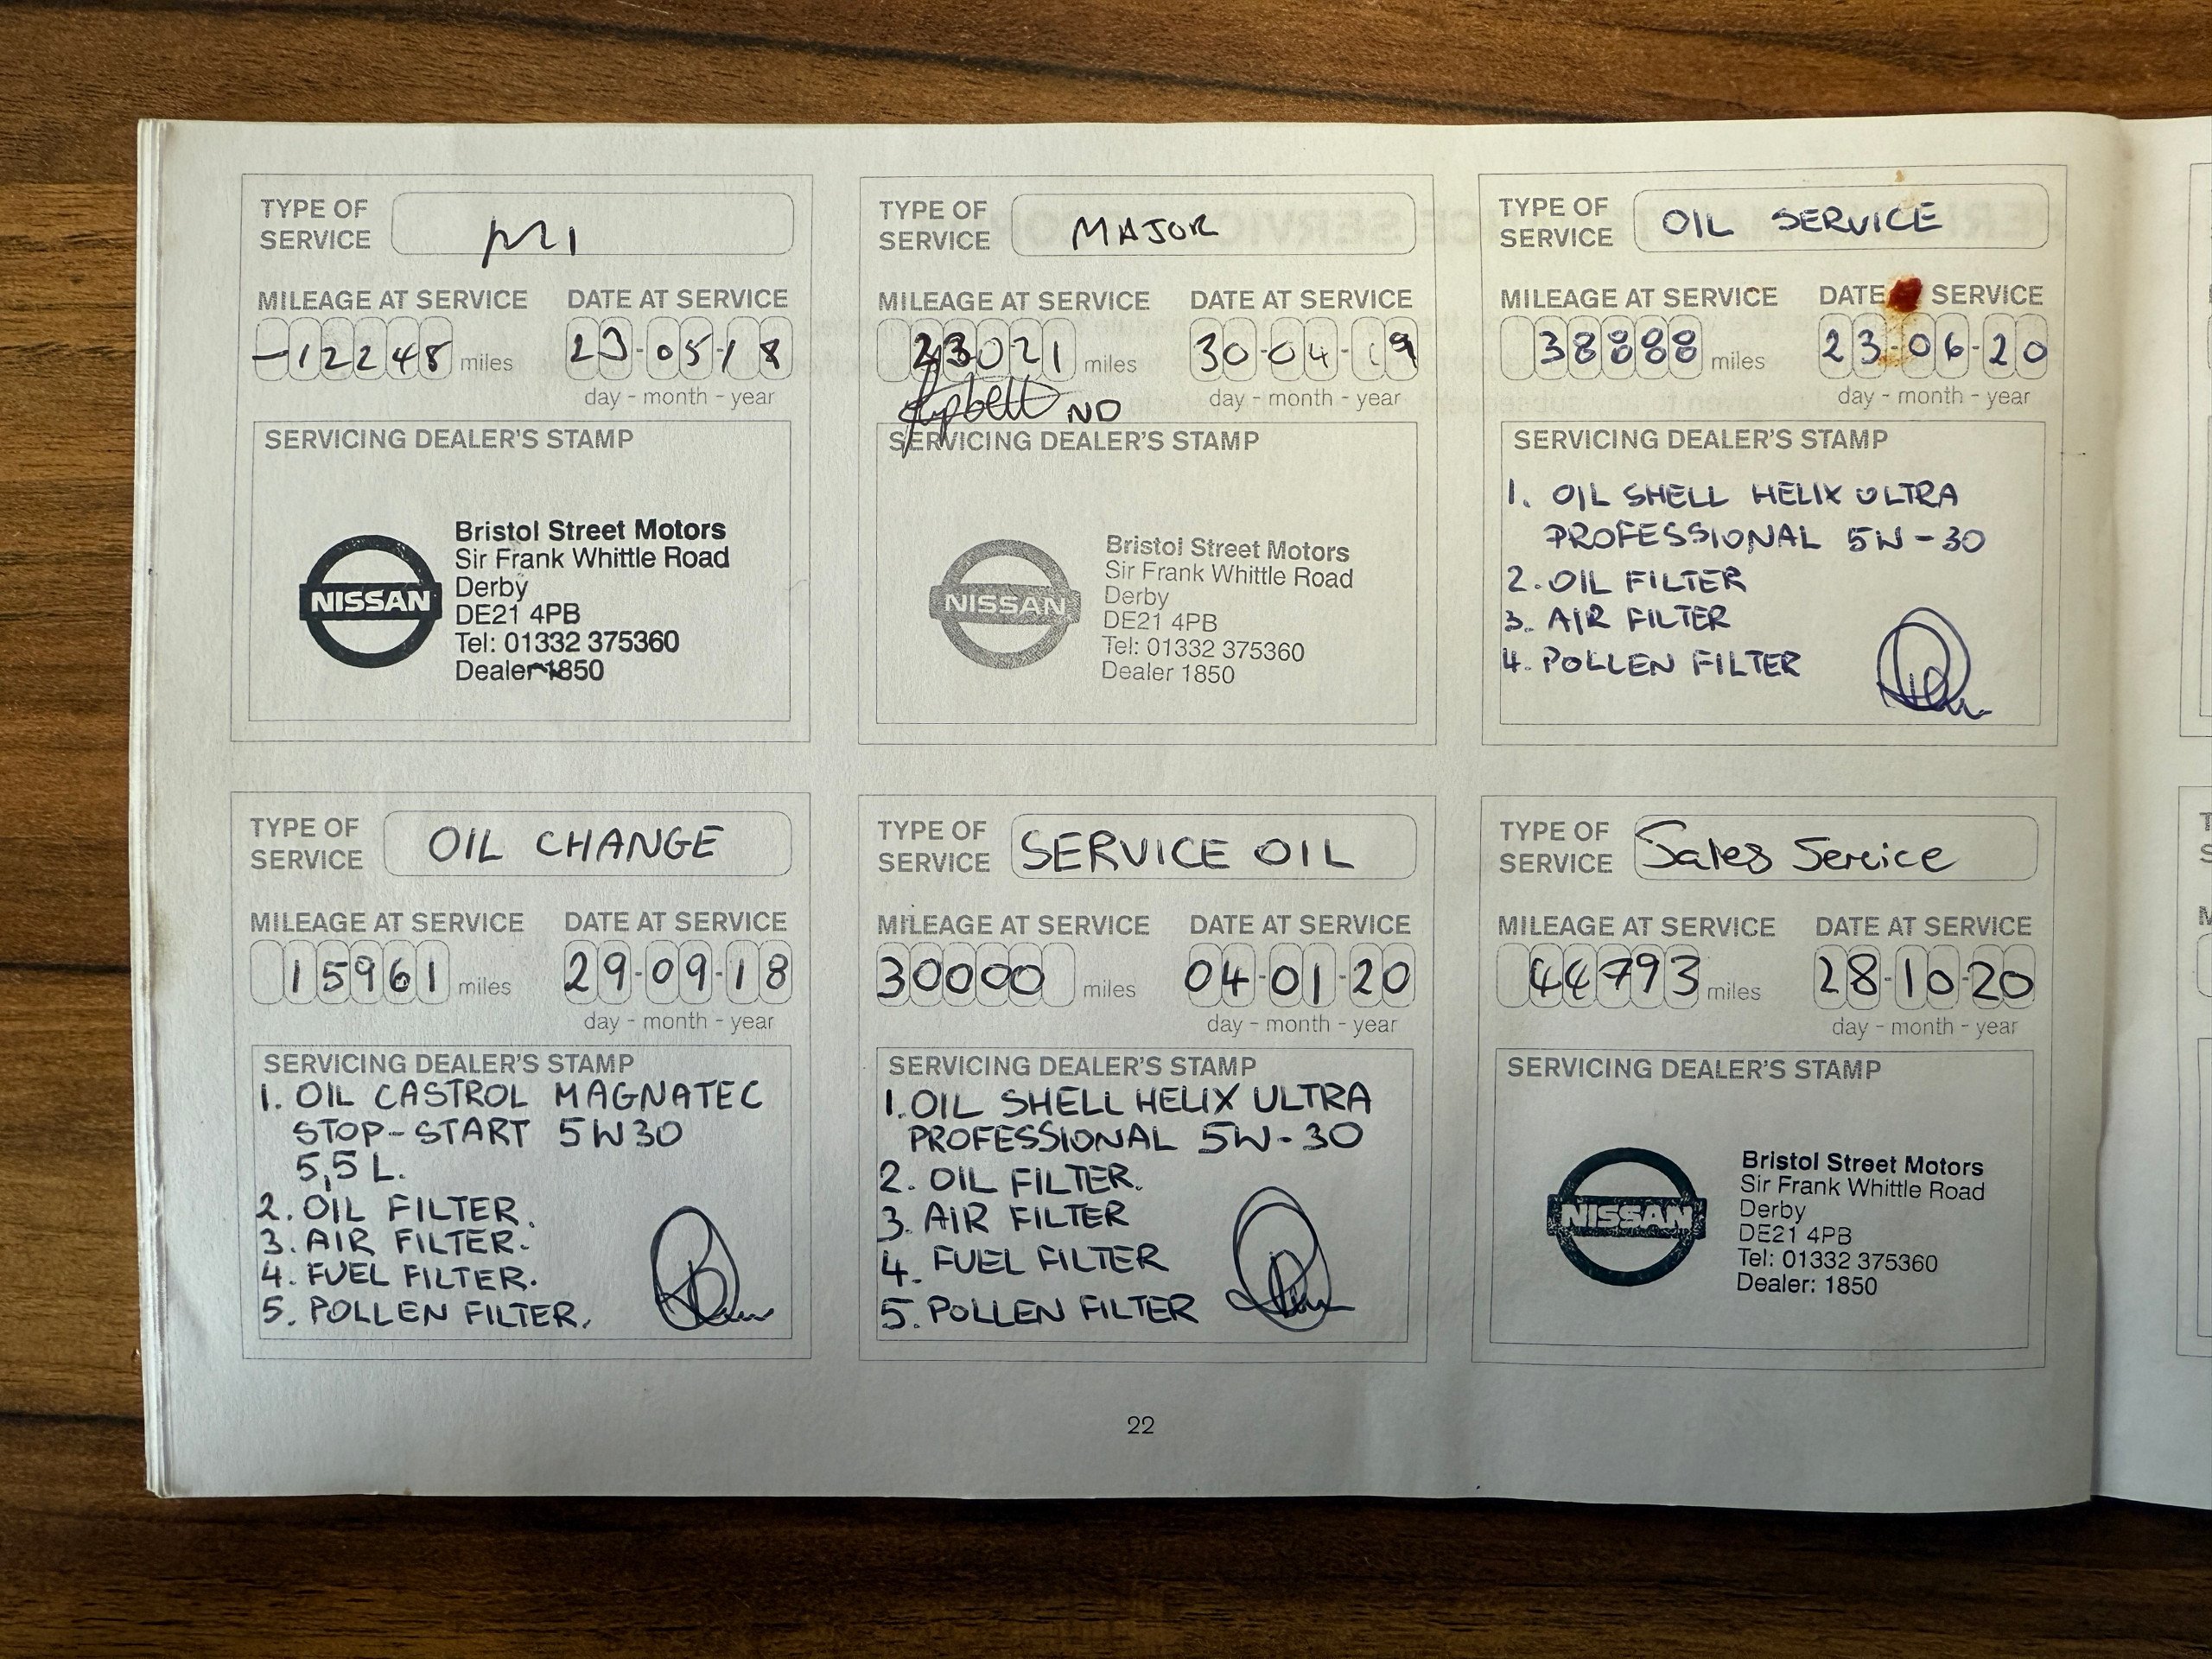 TYPE OF
SERVICE
MILEAGE AT SERVICE DATE AT SERVICE
-12248 miles 23-05-18
day - month - year
SERVICING DEALER'S STAMP
NISSAN
Bristol Street Motors
Sir Frank Whittle Road
Derby
DE21 4PB
Tel: 01332 375360
Dealer 1850
TYPE OF
SERVICE MAJOR
MILEAGE AT SERVICE DATE AT SERVICE
23021 miles 30-04-19
day - month - year
ND
SERVICING DEALER'S STAMP
NISSAN
Bristol Street Motors
Sir Frank Whittle Road
Derby
DE21 4PB
Tel: 01332 375360
Dealer 1850
TYPE OF
SERVICE OIL SERVICE
MILEAGE AT SERVICE DATE SERVICE
38888 miles 23-06-20
day - month - year
SERVICING DEALER'S STAMP
1. OIL SHELL HELIX ULTRA
PROFESSIONAL 5W-30
2. OIL FILTER
3. AIR FILTER
4. POLLEN FILTER
TYPE OF
SERVICE OIL CHANGE
MILEAGE AT SERVICE DATE AT SERVICE
15961 miles 29-09-18
day - month - year
SERVICING DEALER'S STAMP
1. OIL CASTROL MAGNATEC
STOP-START 5W30
5,5 L.
2. OIL FILTER.
3. AIR FILTER.
4. FUEL FILTER.
5. POLLEN FILTER.
TYPE OF
SERVICE SERVICE OIL
MILEAGE AT SERVICE DATE AT SERVICE
30000 miles 04-01-20
day - month - year
SERVICING DEALER'S STAMP
1. OIL SHELL HELIX ULTRA
PROFESSIONAL 5W-30
2. OIL FILTER.
3. AIR FILTER
4. FUEL FILTER
5. POLLEN FILTER
TYPE OF
SERVICE Sales Service
MILEAGE AT SERVICE DATE AT SERVICE
44793 miles 28-10-20
day - month - year
SERVICING DEALER'S STAMP
NISSAN
Bristol Street Motors
Sir Frank Whittle Road
Derby
DE21 4PB
Tel: 01332 375360
Dealer: 1850
22